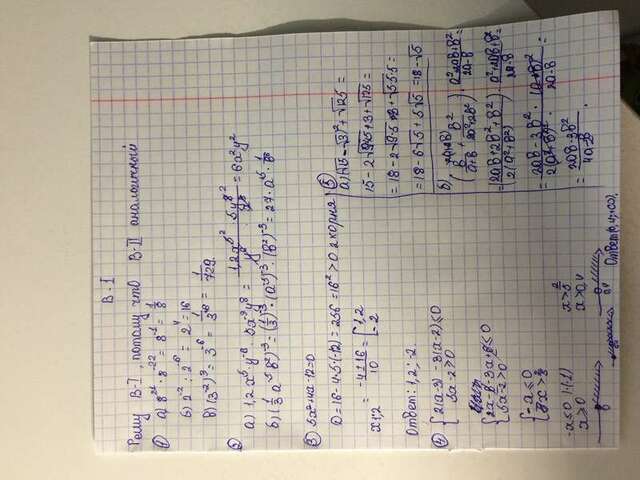 В - I
Решу В-I, потому что В-II аналогичный
① а) 8²¹ · 8⁻²² = 8⁻¹ = 1/8
б) 2⁻² : 2⁻⁶ = 2⁴ = 16
в) (3⁻²)³ = 3⁻⁶ = 1/3⁶ = 1/729.
②
а) 1,2 x⁵ · y⁻⁶ · 5x⁻³y⁸ = 1,2x⁵/y⁶ · 5y⁸/x³ = 6x²y²
б) (1/3 a⁻⁵ b²)⁻³ = (1/3)⁻³ · (a⁻⁵)⁻³ · (b²)⁻³ = 27 · a¹⁵ · 1/b⁶
③ 5x² + 4x - 12 = 0
D = 16 - 4 · 5 · (-12) = 256 = 16² > 0 2 корня
x1,2 = -4±16/10 = [1,2
-2
Ответ: 1,2 ; -2.
④ {2(x-3) - 3(x-2) ≤ 0
5x - 2 > 0
{2x - 6 - 3x + 6 ≤ 0
5x - 2 > 0
{-x ≤ 0
-x ≤ 0 |·(-1)
x ≥ 0
0
x > 2/5
x > 0,4
0,4
Ответ (0,4; +∞).
⑤
а) (√15 - √3)² + √125 =
15 - 2√45 + 3 + √125 =
= 18 - 2√9·5 + √5·5·5 =
= 18 - 6√5 + 5√5 = 18 - √5
б)
(b/a+b + b²/2a²+2b²) · a²+2ab+b²/2a-b =
= (2ab+2b²+b²/2(a²+b²)) · a²+2ab+b²/2a-b =
= 2ab-3b²/2(a²+b²) · (a+b)²/2a-b =
= 2ab-3b²/4a-b.